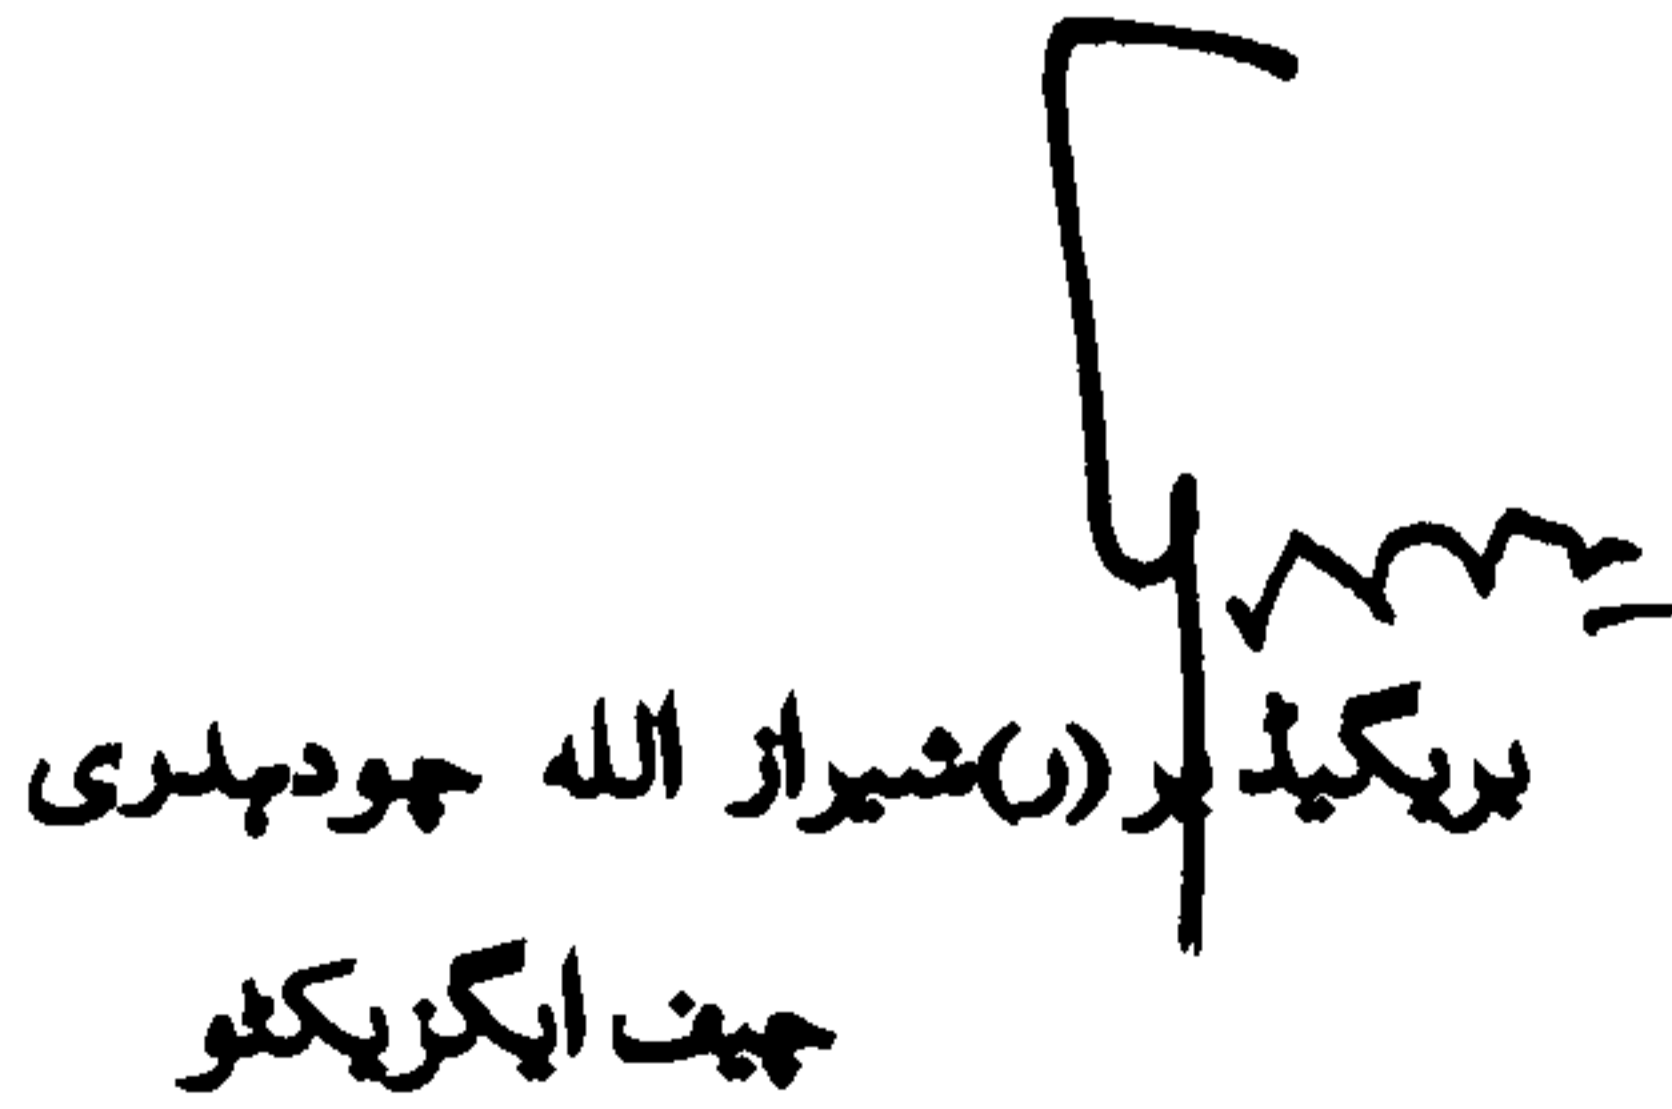 بریگیڈیر (ر) شیراز الله چودہدری
چیف ایگزیکٹو